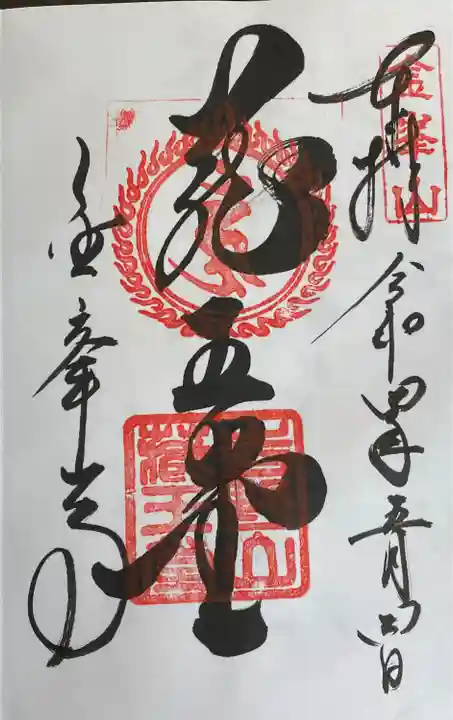 金峯山
奉拝 令和四年五月四日
蔵王堂
金峯山寺